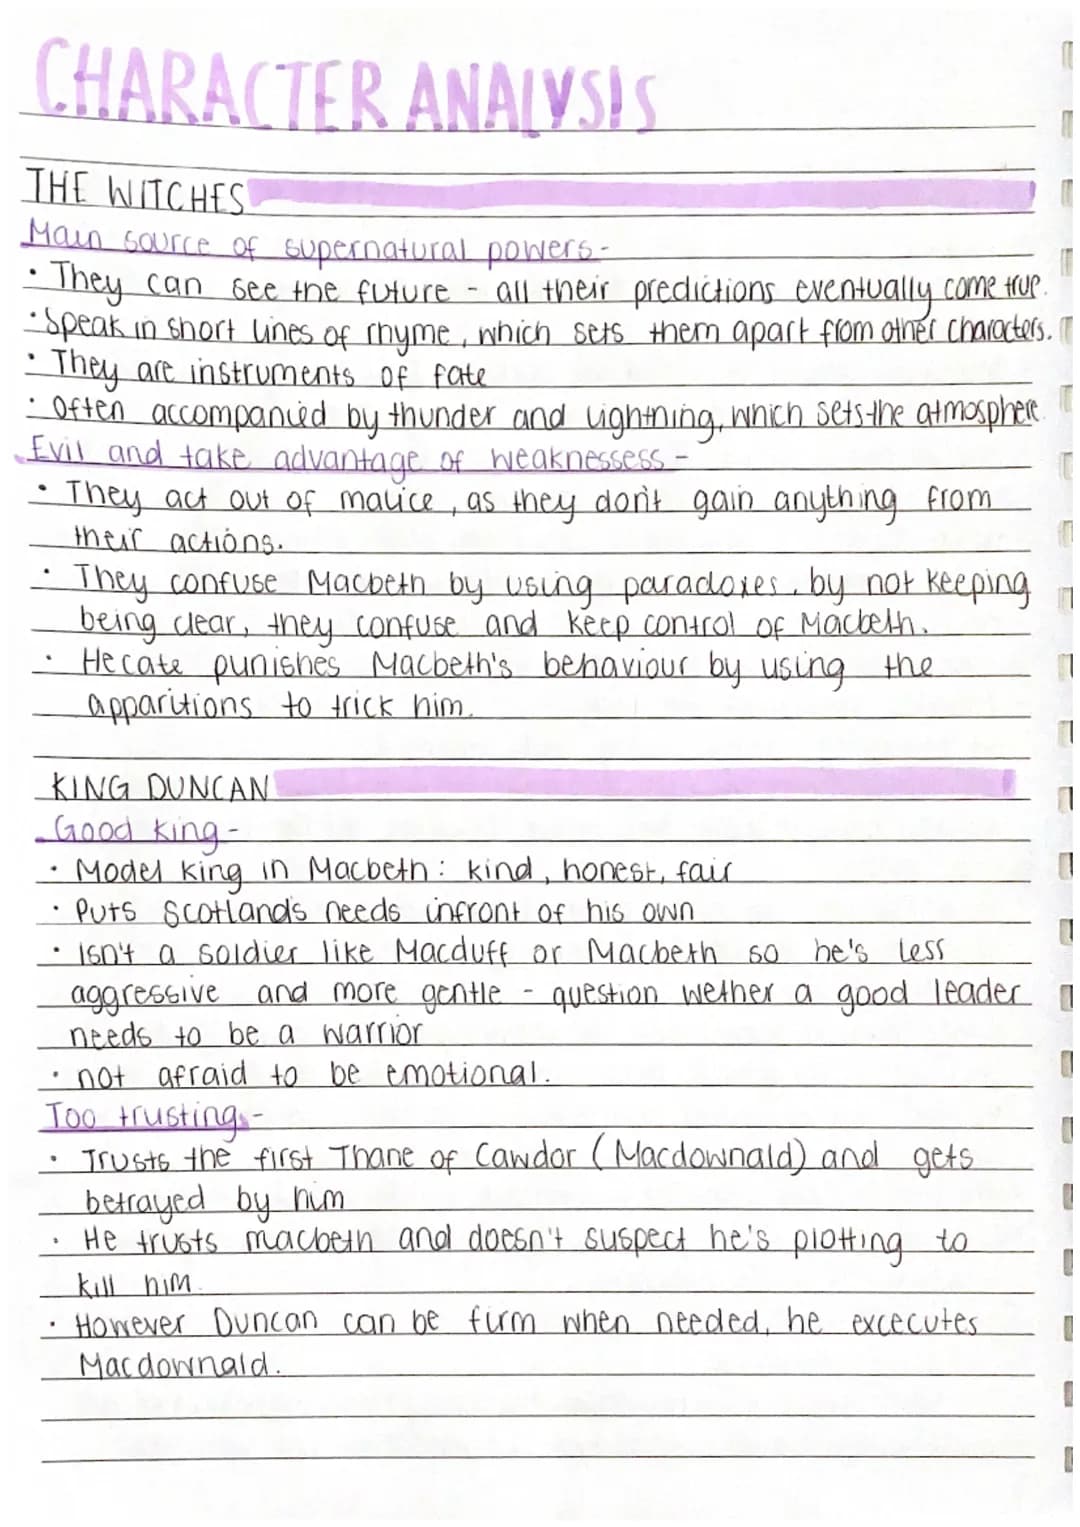 CHARACTER ANALYSIS
THE WITCHES
Main source of supernatural powers-
• They can see the future - all their predictions eventually come true.
• Speak in short lines of rhyme, which sets them apart from other characters.
• They are instruments of fate
• Often accompanied by thunder and lightning, which sets the atmosphere.
Evil and take advantage of weaknessess -
• They act out of malice, as they don't gain anything from
their actions.
• They confuse Macbeth by using paradoxes, by not keeping
being clear, they confuse and keep control of Macbeth.
• Hecate punishes Macbeth's behaviour by using the
apparitions to trick him.
KING DUNCAN
Good king -
• Model king in Macbeth: kind, honest, fair
• Puts Scotland's needs infront of his own
• Isn't a soldier like Macduff or Macbeth so he's less
aggressive and more gentle - question wether a good leader
needs to be a warrior
• not afraid to be emotional.
Too trusting -
• Trusts the first Thane of Cawdor (Macdownald) and gets
betrayed by him
• He trusts macbeth and doesn't suspect he's plotting to
kill him.
• However Duncan can be firm when needed, he excecutes
Macdownald.